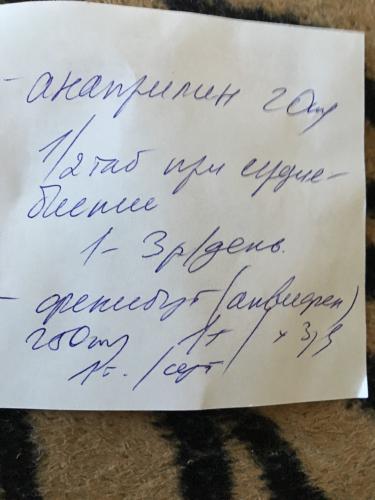 - анаприлин 20мг
1/2 таб при сердце-
биении
1-3 р/день.
- фенибут (анвифен)
250мг 1т x 3р
1т. /сут